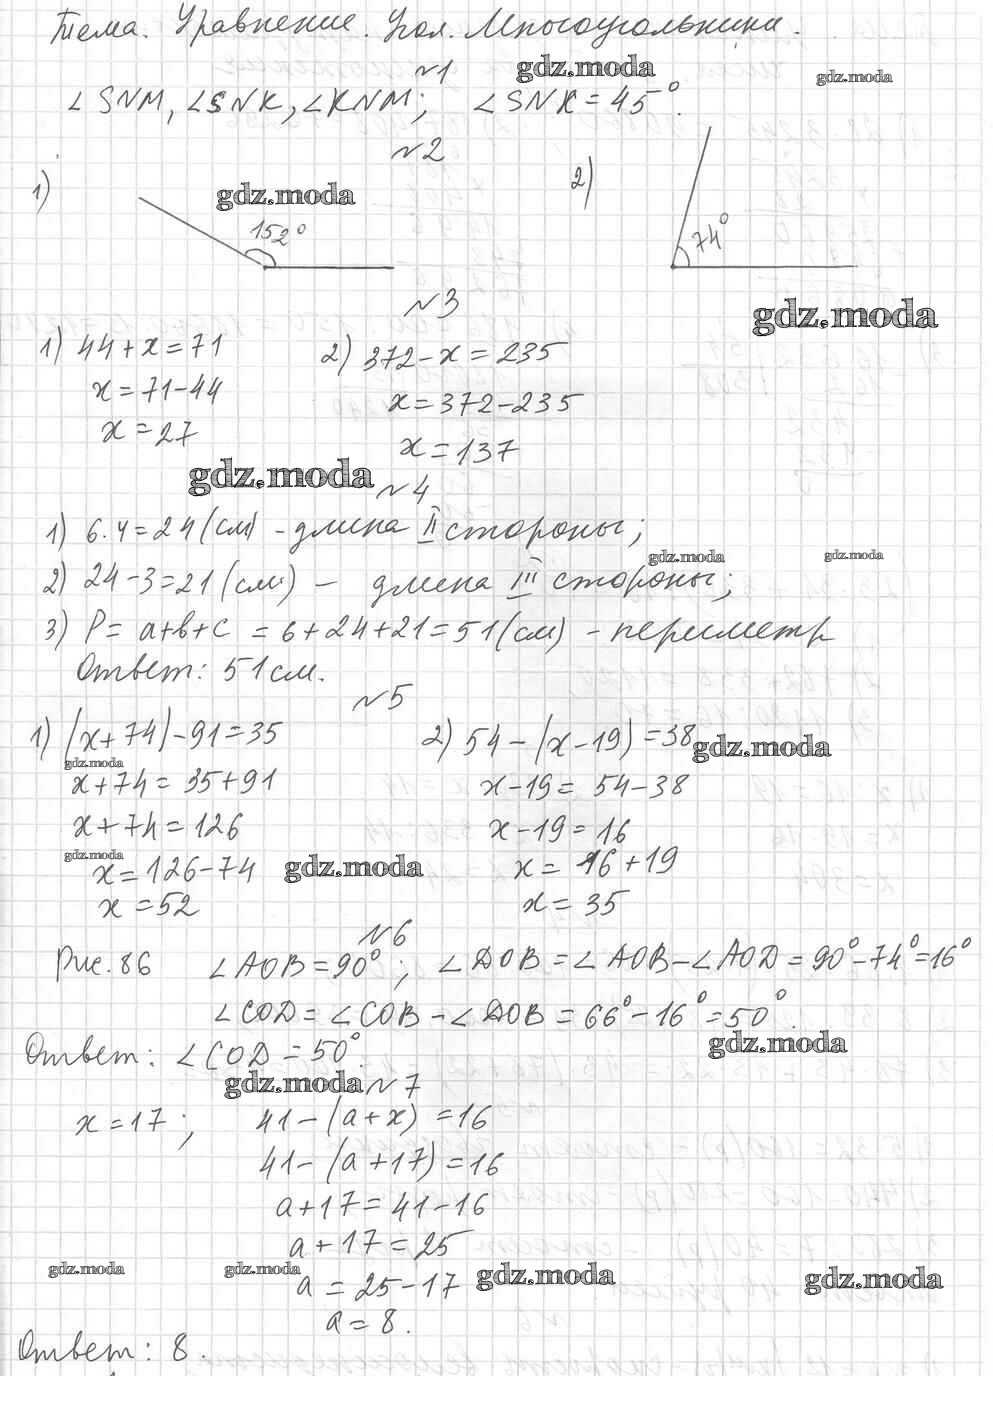 Тема. Уравнение. Угол. Многоугольники.
№1
gdz.moda
gdz.moda
∠SNM, ∠SNK, ∠KNM; ∠SNK = 45°.
№2
1)
gdz.moda
2)
152°
74°
№3
gdz.moda
1) 44+x=71 2) 372-x=235
x=71-44 x=372-235
x=27 x=137
gdz.moda
№4
1) 6·4=24(см) - длина II стороны;
gdz.moda
gdz.moda
2) 24-3=21(см) – длина III стороны;
3) P= a+b+c = 6+24+21=51(см) - периметр
Ответ: 51см.
№5
1) (x+74)-91=35 2) 54-(x-19)=38
gdz.moda
gdz.moda
x+74=35+91 x-19=54-38
x+74=126 x-19=16
gdz.moda
gdz.moda
x=126-74 x=16+19
x=52 x=35
№6
Рис. 86 ∠AOB=90°; ∠DOB=∠AOB-∠AOD=90°-74°=16°
∠COD=∠COB-∠DOB=66°-16°=50°.
gdz.moda
Ответ: ∠COD=50°.
gdz.moda
№7
x=17; 41-(a+x)=16
41-(a+17)=16
a+17=41-16
a+17=25
gdz.moda
gdz.moda
gdz.moda
gdz.moda
a=25-17
a=8.
Ответ: 8.